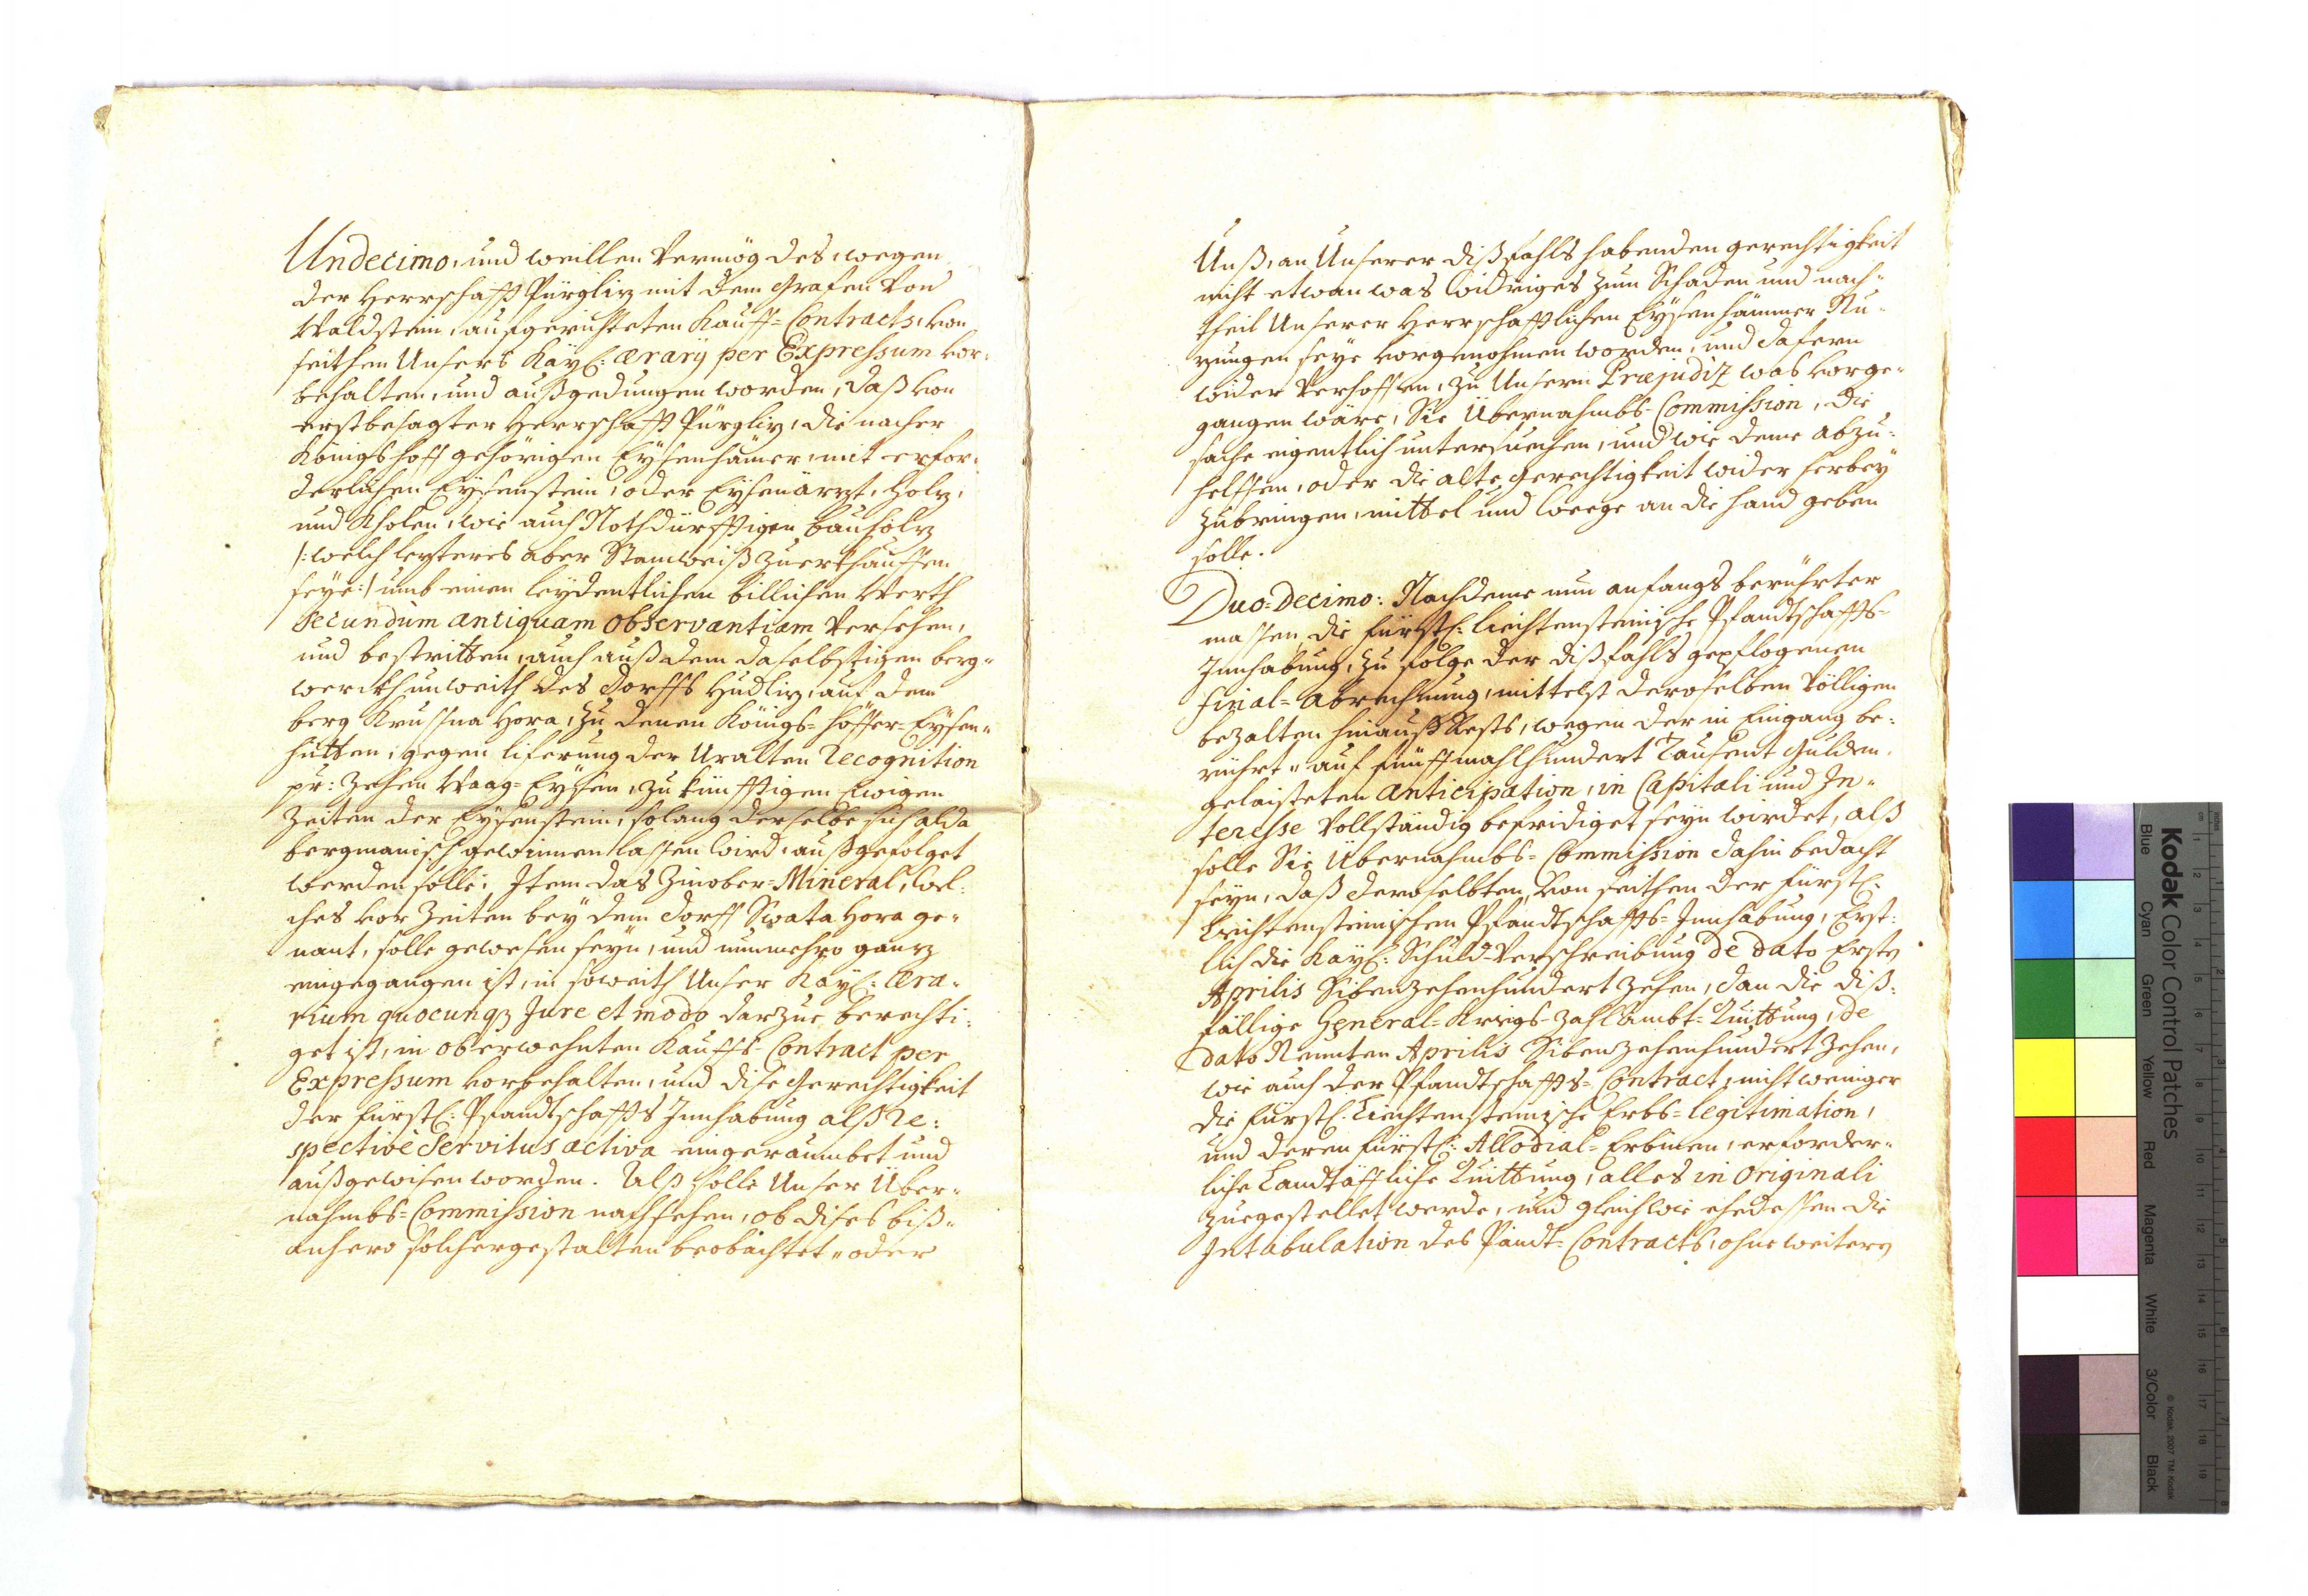 Undecimo, und weillen Vermög des, wegen
der Herrschafft Pürgliz mit dem Grafen Von
Waldstein, aufgerichteten Kauff-Contracts, von
seithen Unsers Kayl: ærarÿ per Expressum vor-
behalten, und außgedungen worden, daß von
erstbesagter Herrschafft Pürgliz, die nacher
Königshoff gehörigen Eÿsenhämer, mit erfor-
derlichen Eÿsenstein, oder Eÿsenärzt, Holz,
und Kholen, wie auch Nothdürfftigen bauholz
/: welch lezteres aber Stamweiß zuerkhauffen
seÿe :/ umb einen leydentlichen billichen Werth
secundum antiquam observantiam Versehen,
und bestritten, auch auß dem daselbstigen berg-
werckh unweith des Dorffs Hudliz, auf dem
berg Krussna Hora, zu denen Königs-höffer-Eÿsen-
hütten, gegen liferung der Uralten Recognition
pr: Zehen Waag-Eÿsen, zu künfftigen Ewigen
Zeiten der Eÿsenstein, solang derselbe sich alda
bergmanisch gewinnen lassen wird, außgefolget
werden solle; Item das Zinober-Mineral, wel-
ches vor Zeiten beÿ dem Dorff Swata Hora ge-
nant, solle gewesen seÿn, und nunmehro gantz
eingegangen ist, in soweith Unser Kayl: Æra-
rium quocunqz Jure et modo darzue berechti-
get ist, in oberwehnten Kauffs-Contract per
Expressum vorbehalten, und dise Gerechtigkeit
der fürstl: Pfandtschaffts Innhabung alß Re-
spectivè Servitus activa eingeraumbet und
außgewisen worden. Alß solle Unser Über-
nahmbs-Commission nachsehen, ob dises biß-
anhero solchergestalten beobachtet- oder
Unß, an Unserer dißfahls habenden gerechtigkeit
nicht etwan was widriges zum Schaden und nach-
theil Unserer Herrschafftlichen Eÿsenhämmer Nu-
zungen seÿe vorgenohmen worden, und dafern
wider Verhoffen, zu Unsern Præjudiz was vorge-
gangen wäre, Sie Übernahmbs-Commission, die
sache eigentlich untersuechen, und wie deme abzu-
helffen, oder die alte gerechtigkeit wider herbeÿ
zubringen, mittel und Weege an die hand geben
solle.
Duo-Decimo: Nachdeme nun anfangs berührter
massen die fürstl: Liechtensteinische Pfandtschaffts-
Innhabung, zu folge der dißfahls gepflogenen
final-abrechnung, mittelst deroselben völligen
bezalten hinauß Rests, wegen der in Eingang be-
rührt- auf fünffmahlhundert Tausent Gulden
gelaisteten anticipation, in Capitali und In-
teresse Vollständig befridiget seÿn wirdet, alß
solle Sie Übernahmbs-Commission dahin bedacht
seÿn, daß deroselbten, von seithen der fürstl:
Liechtensteinischen Pfandtschaffts-Innhabung, Erst-
lich die Kayl: Schuld-Verschreibung de dato Erste
Aprilis Sibenzehenhundert Zehen, dan die diß-
fällige General-Kriegs-zahlambt-Quittung, de
dato Neunten Aprilis Sibenzehenhundert Zehen,
wie auch der Pfandtschaffts-Contract, nicht weniger
die fürstl: Liechtensteinische Erbs-legitimation,
und deren fürstl: Allodial-Erbinen, erforder-
liche Landtäffliche Quittung, alles in originali
zuegestellet werde, und gleich wie ehedessen die
Intabulation des Pandt-Contracts, ohne weitere
Kodak Color Control Patches
Blue Cyan Green Yellow Red Magenta White 3/Color Black
© Kodak, 2007 TM: Kodak